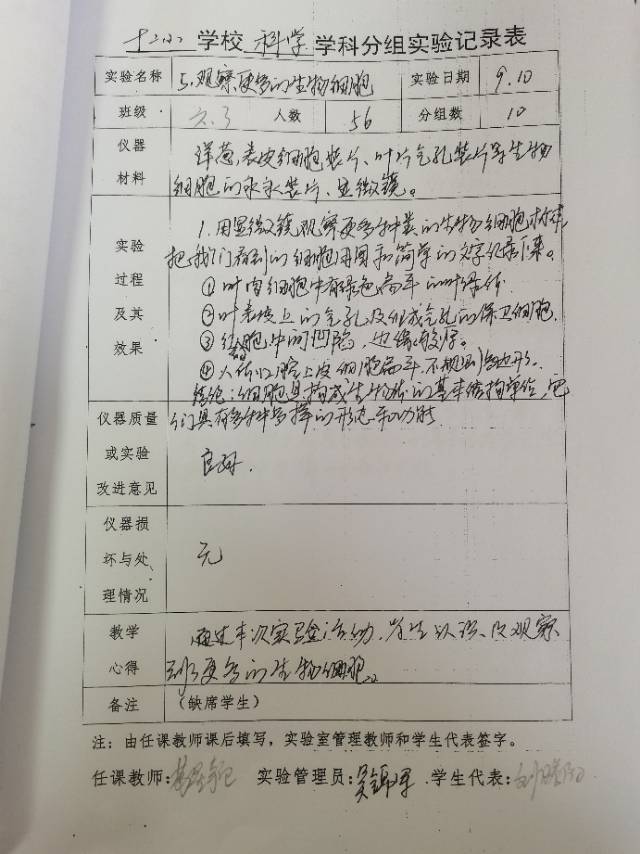 十二小 学校 科学 学科分组实验记录表
实验名称 5.观察更多的生物细胞 实验日期 9.10
班级 六.3 人数 56 分组数 10
仪器材料 洋葱表皮细胞装片、叶片气孔装片等生物
细胞的永久装片、显微镜。
实验过程及其效果 1.用显微镜观察更多种类的生物细胞标本,
把我们看到的细胞用图和简单的文字记录下来。
①叶肉细胞中有绿色扁平的叶绿体
②叶表皮上的气孔及组成气孔的保卫细胞.
③红细胞中间凹陷,边缘较厚。
④人的口腔上皮细胞扁平,不规则多边形.
结论:细胞是构成生物体的基本结构单位,它
们具有多种多样的形态和功能
仪器质量或实验改进意见 良好.
仪器损坏与处理情况 无
教学心得 通过本次实验活动,学生认识及观察
到了更多的生物细胞。
备注 (缺席学生)
注:由任课教师课后填写,实验室管理教师和学生代表签字。
任课教师: 实验管理员: 学生代表: